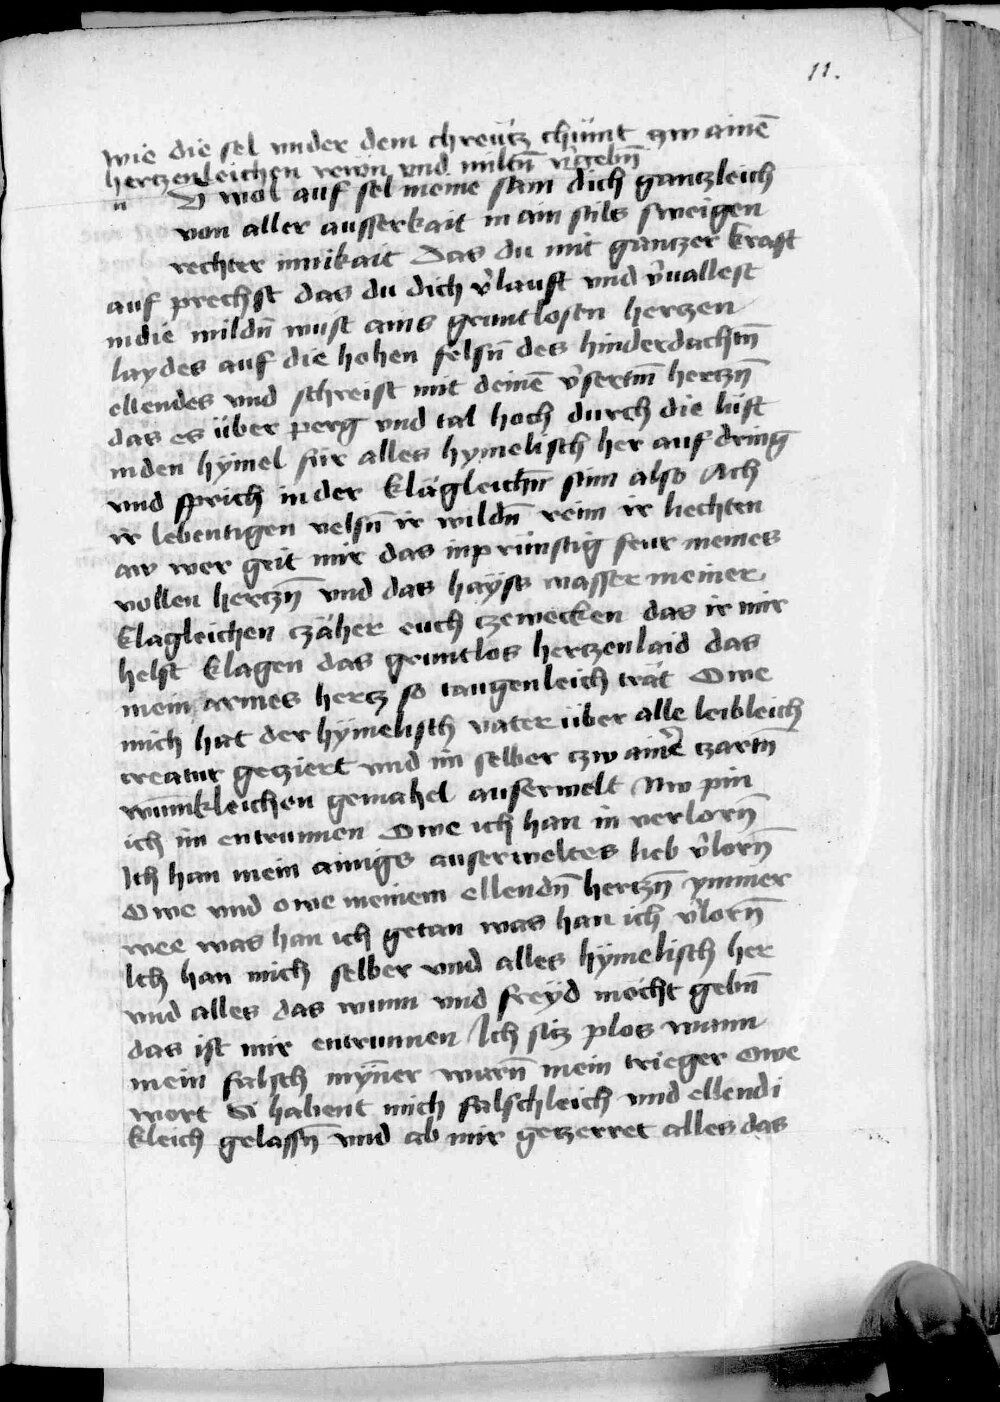 11.
wie die sel vnder dem chreücz chümt zw ainē
hertzenleichen rewn vnd miltn̄ v̓gebn̄
n D wol auf sel meine sam dich gantzleich
von aller ausserkait in ain stils sweigen
rechter innikait Das du mit gantzer kraft
auf prechst das du dich v̓lauft vnd v̓uallest
in die wildn̄ wust ains gruntlosen hertzen
laydes auf die hohen felsn̄ des hinderdachtn̄
ellendes vnd schreist mit deinē v̓sertm̄ hertzn̄
das es über perg vnd tal hoch durch die lüft
in den hÿmel für alles hymelisch her auf dring
vnd sprich in der klägleichn̄ stim also Ach
ir lebentigen velsn̄ ir wildn̄ rein ir liechten
aw wer geit mir das inprünstig feur meines
vollen hertzn̄ vnd das hayss wasser meiner
klägleichen czäher euch czewecken das ir mir
helft klagen das gruntlos hertzenlaid das
mein armes hertz so taugenleich trät Owe
mich hat der hÿmelisch vater über alle leibleich
creatur geziert vnd im selber czw ainē czartn̄
wunnikleichen gemahel auserwelt Nw pin
ich im entrunnen Owe ich han in verlorn̄
Ich han mein ainigs auserweltes lieb v̓lorn̄
Owe vnd owe meinem ellendn̄ hertzn̄ ymmer
wee was han ich getan was han ich v̓lorn̄
Ich han mich selber vnd alles hÿmelisch her
vnd alles das wunn vnd freÿd mocht gebn̄
das ist mir entrunnen Ich siz plos wann
mein falsch mÿner warn̄ mein trieger Owe
mort Si habent mich falschleich vnd ellendi
kleich gelassn̄ vnd ab mir geczerret alles das